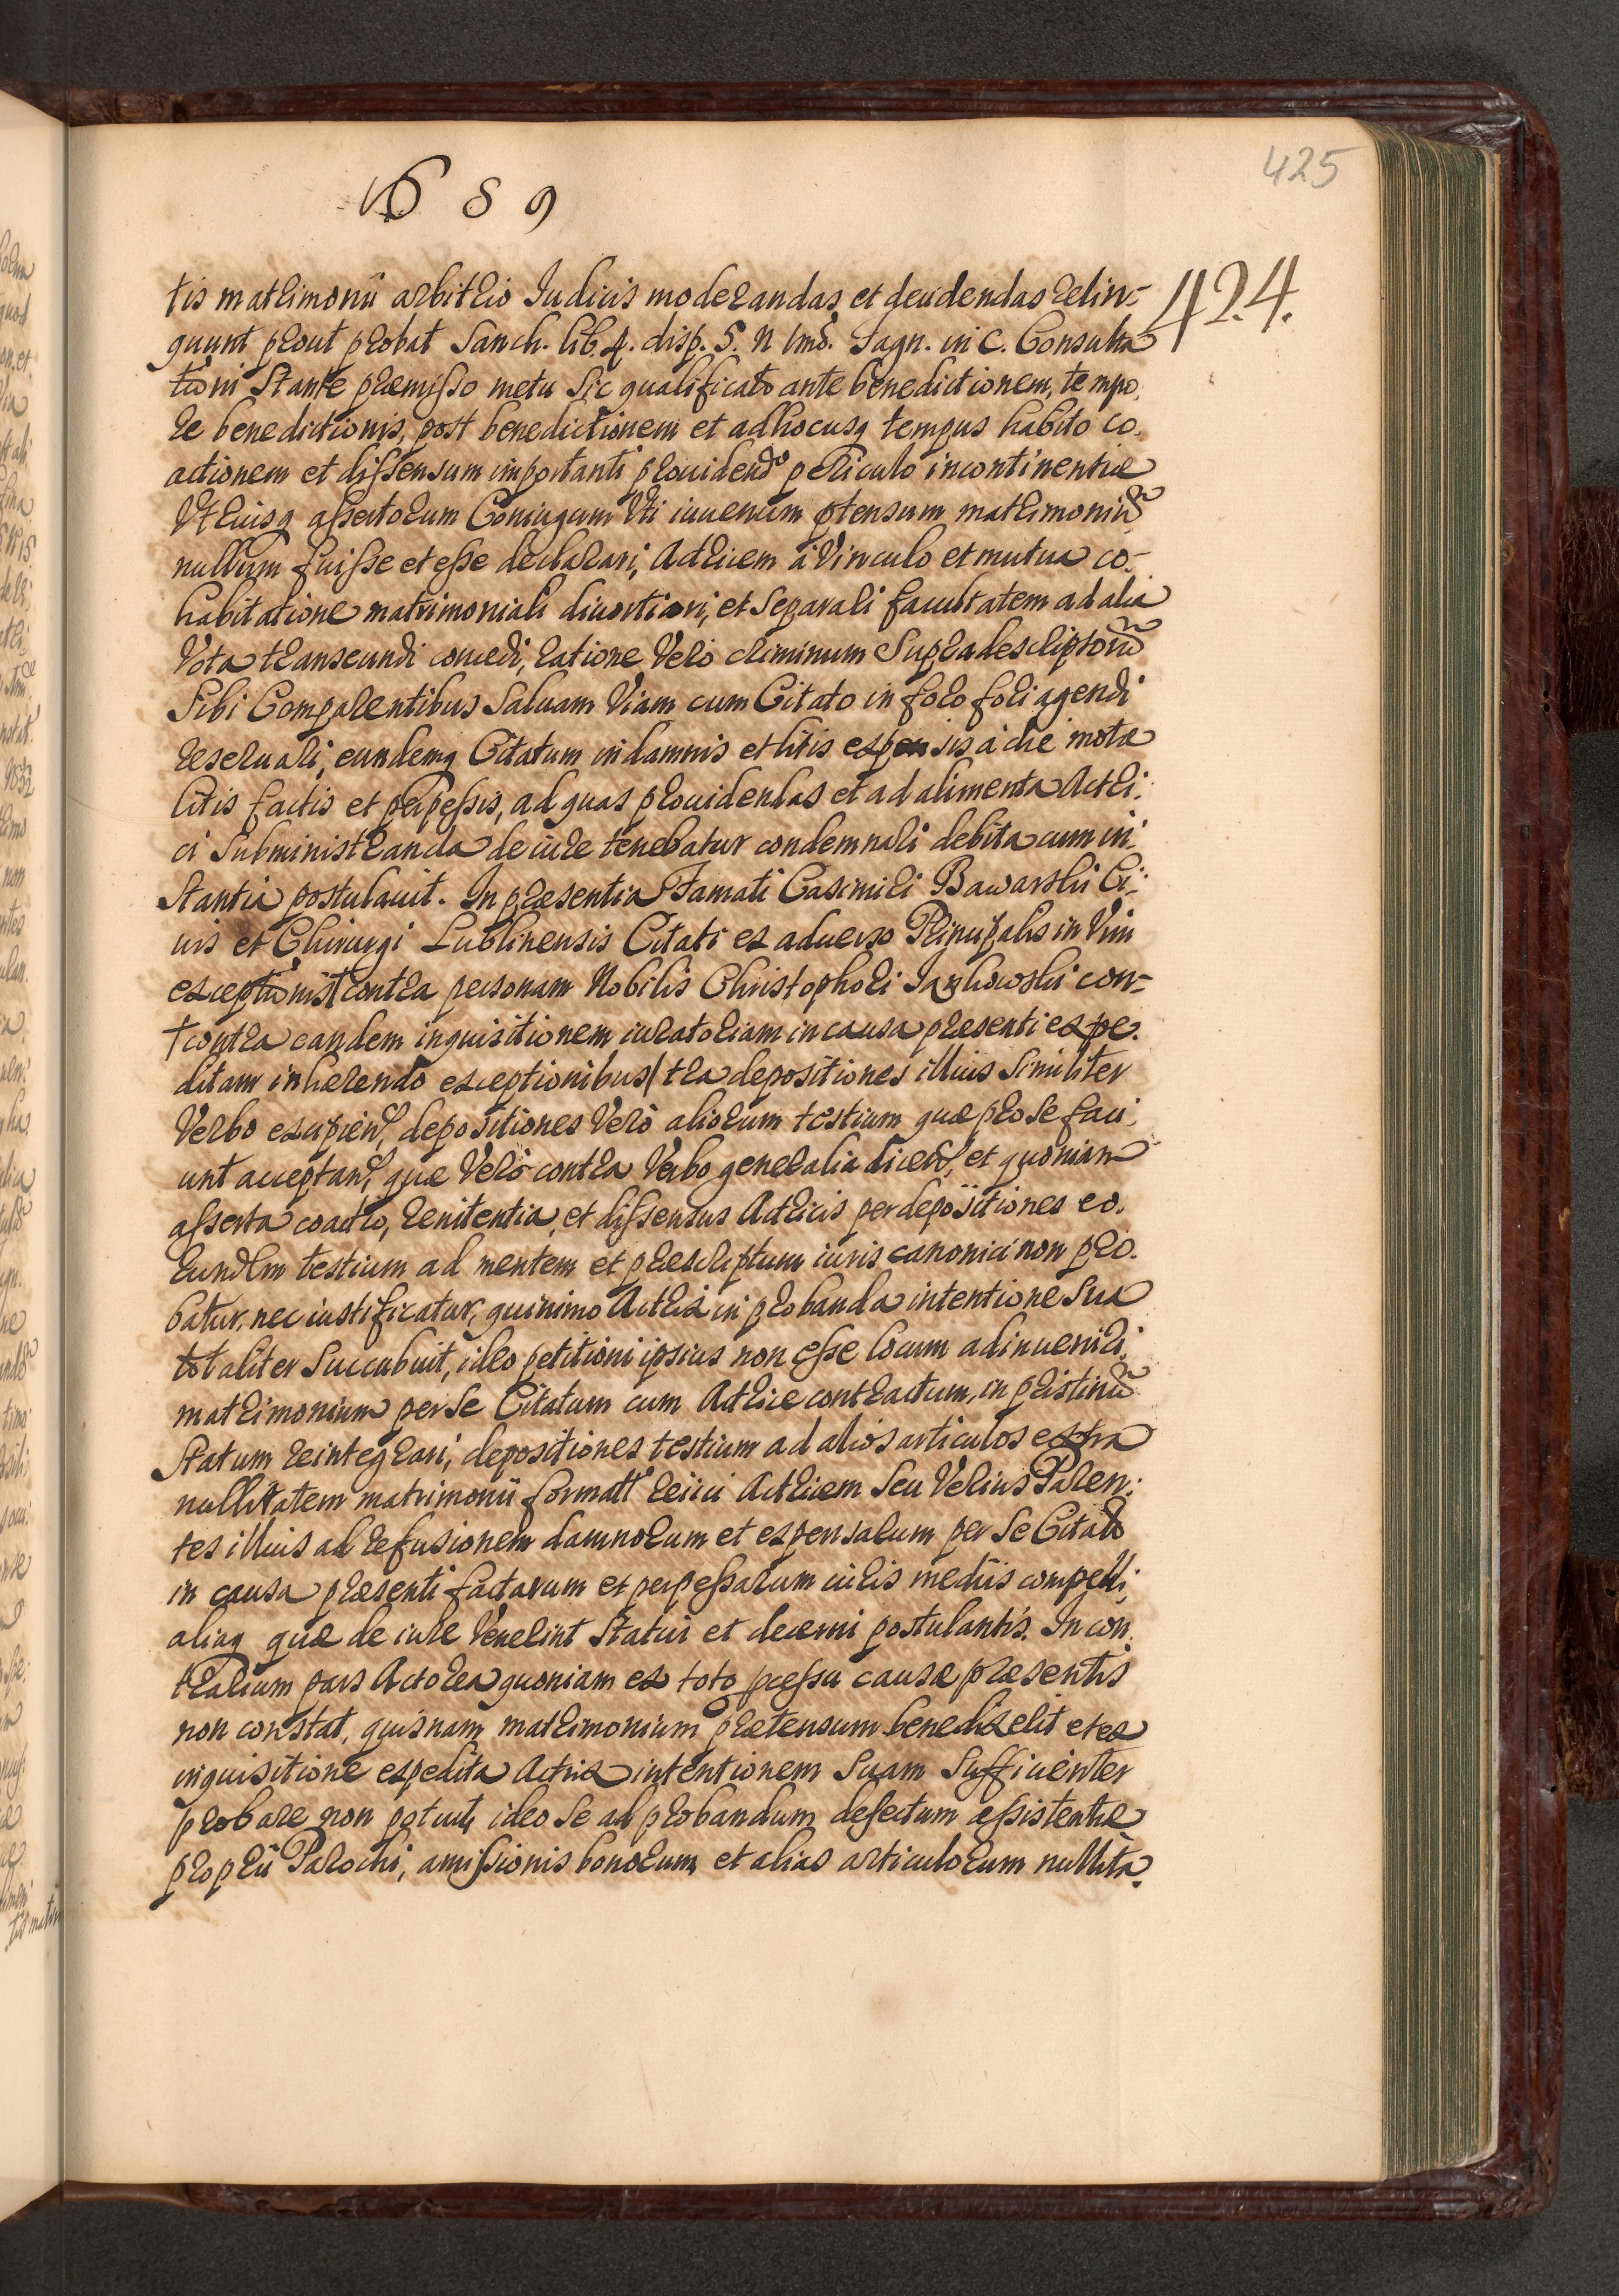 425
1689
424.
tis matrimonii arbitrio Judicis moderandas et decidendas relin-
quunt prout probat Sanch. lib. 4. disp. 5. n Fagn. in C. Consulta
tioni Stante præmisso metu sic qualificato ante benedictionem, tempo.
re benedictionis, post benedictionem et adhocusq tempus habito co.
actionem et dissensum importanti prouidendo periculo incontinentiæ
Vtriusq assertorum Coniugum Vti iuuenum ptensum matrimoniũ
nullum fuisse et esse declarari, Actricem à Vinculo et mutua co-
habitatione matrimoniali diuortiari, et separari facultatem ad alia
Vota transeundi concedi, ratione Verò criminum Supradescriptorũ
Sibi Comparentibus Saluam Viam cum Citato in foro fori agendi
reseruari, eundemq Citatum in damnis et litis expensis à die motæ
litis factis et perpessis, ad quas prouidendas et ad alimenta Actri:
ci Subministranda de iure tenebatur condemnari debita cum in:
stantia postulauit. In præsentia Famati Casimiri Bawarski Ci:
uis et Chirurgi Lublinensis Citati ex aduerso Principalis in Vim
exceptionis contra personam Nobilis Christophori Jankowski con-
†contra eandem inquisitionem iuratoriam in causa præsenti expe.
ditam inhærendo exceptionibus/ tra depositiones illius Similiter
Verbo excipien, depositiones Verò aliorum testium quæ pro se faci:
unt acceptan, quæ Verò contra Verbo generalia dicen, et quoniam
asserta coactio, renitentia, et dissensus Actricis per depositiones eo.
rundem testium ad mentem et præscriptum iuris canonici non pro.
batur, nec iustificatur, quinimo Actrix in probanda intentione sua
totaliter Succubuit, ideo petitioni ipsius non esse locum adinueniri,
matrimonium per se Citatum cum Actrice contractum, in pristinũ
Statum reintegrari, depositiones testium ad aliòs articulos extra
nullitatem matrimonii formatt reiici Actricem Seu Verius Paren:
tes illius ad refusionem damnorum et expensarum per se Citatũ
in causa præsenti factarum et perpessarum iuris mediis compelli,
aliaq quæ de iure Venerint Statui et decerni postulantis. In con.
trarium pars Actorea quoniam ex toto pcessu causæ præsentis
non constat, quisnam matrimonium prætensum benedixerit et ex
inquisitione expedita Actrix intentionem Suam Sufficienter
probare non potuit, ideo Se ad probandum defectum assistentiæ
proprii Parochi, amissionis bonorum et alias articulorum nullita.